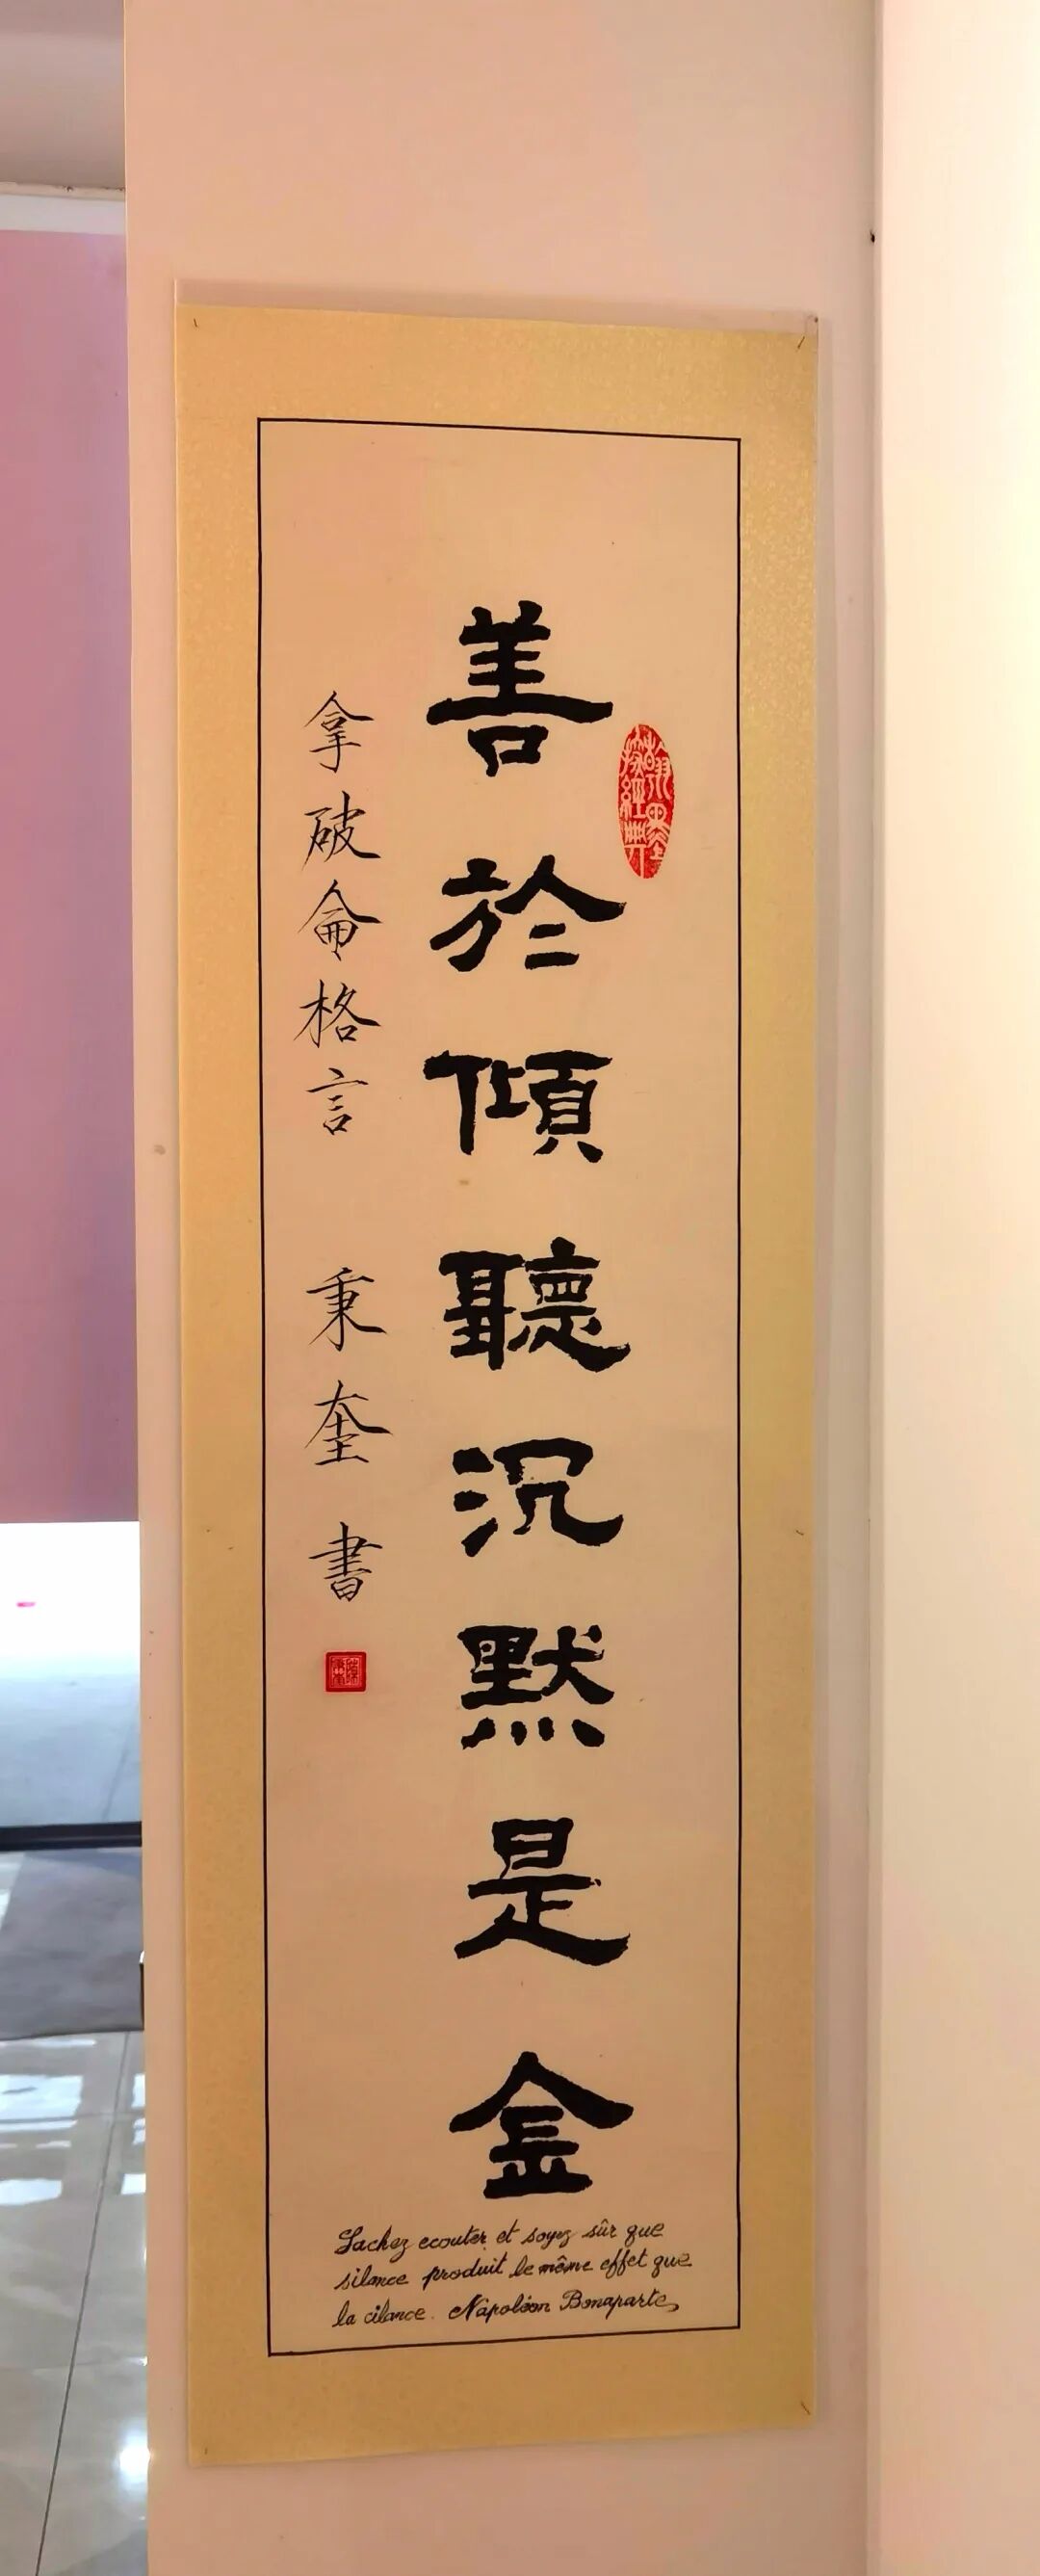 善於傾聽沉默是金
拿破侖格言 秉奎書
翰墨
探經典
Sachez ecouter et soyez sûr que
silance produit le même effet que
la cilance. Napoléon Bonaparte